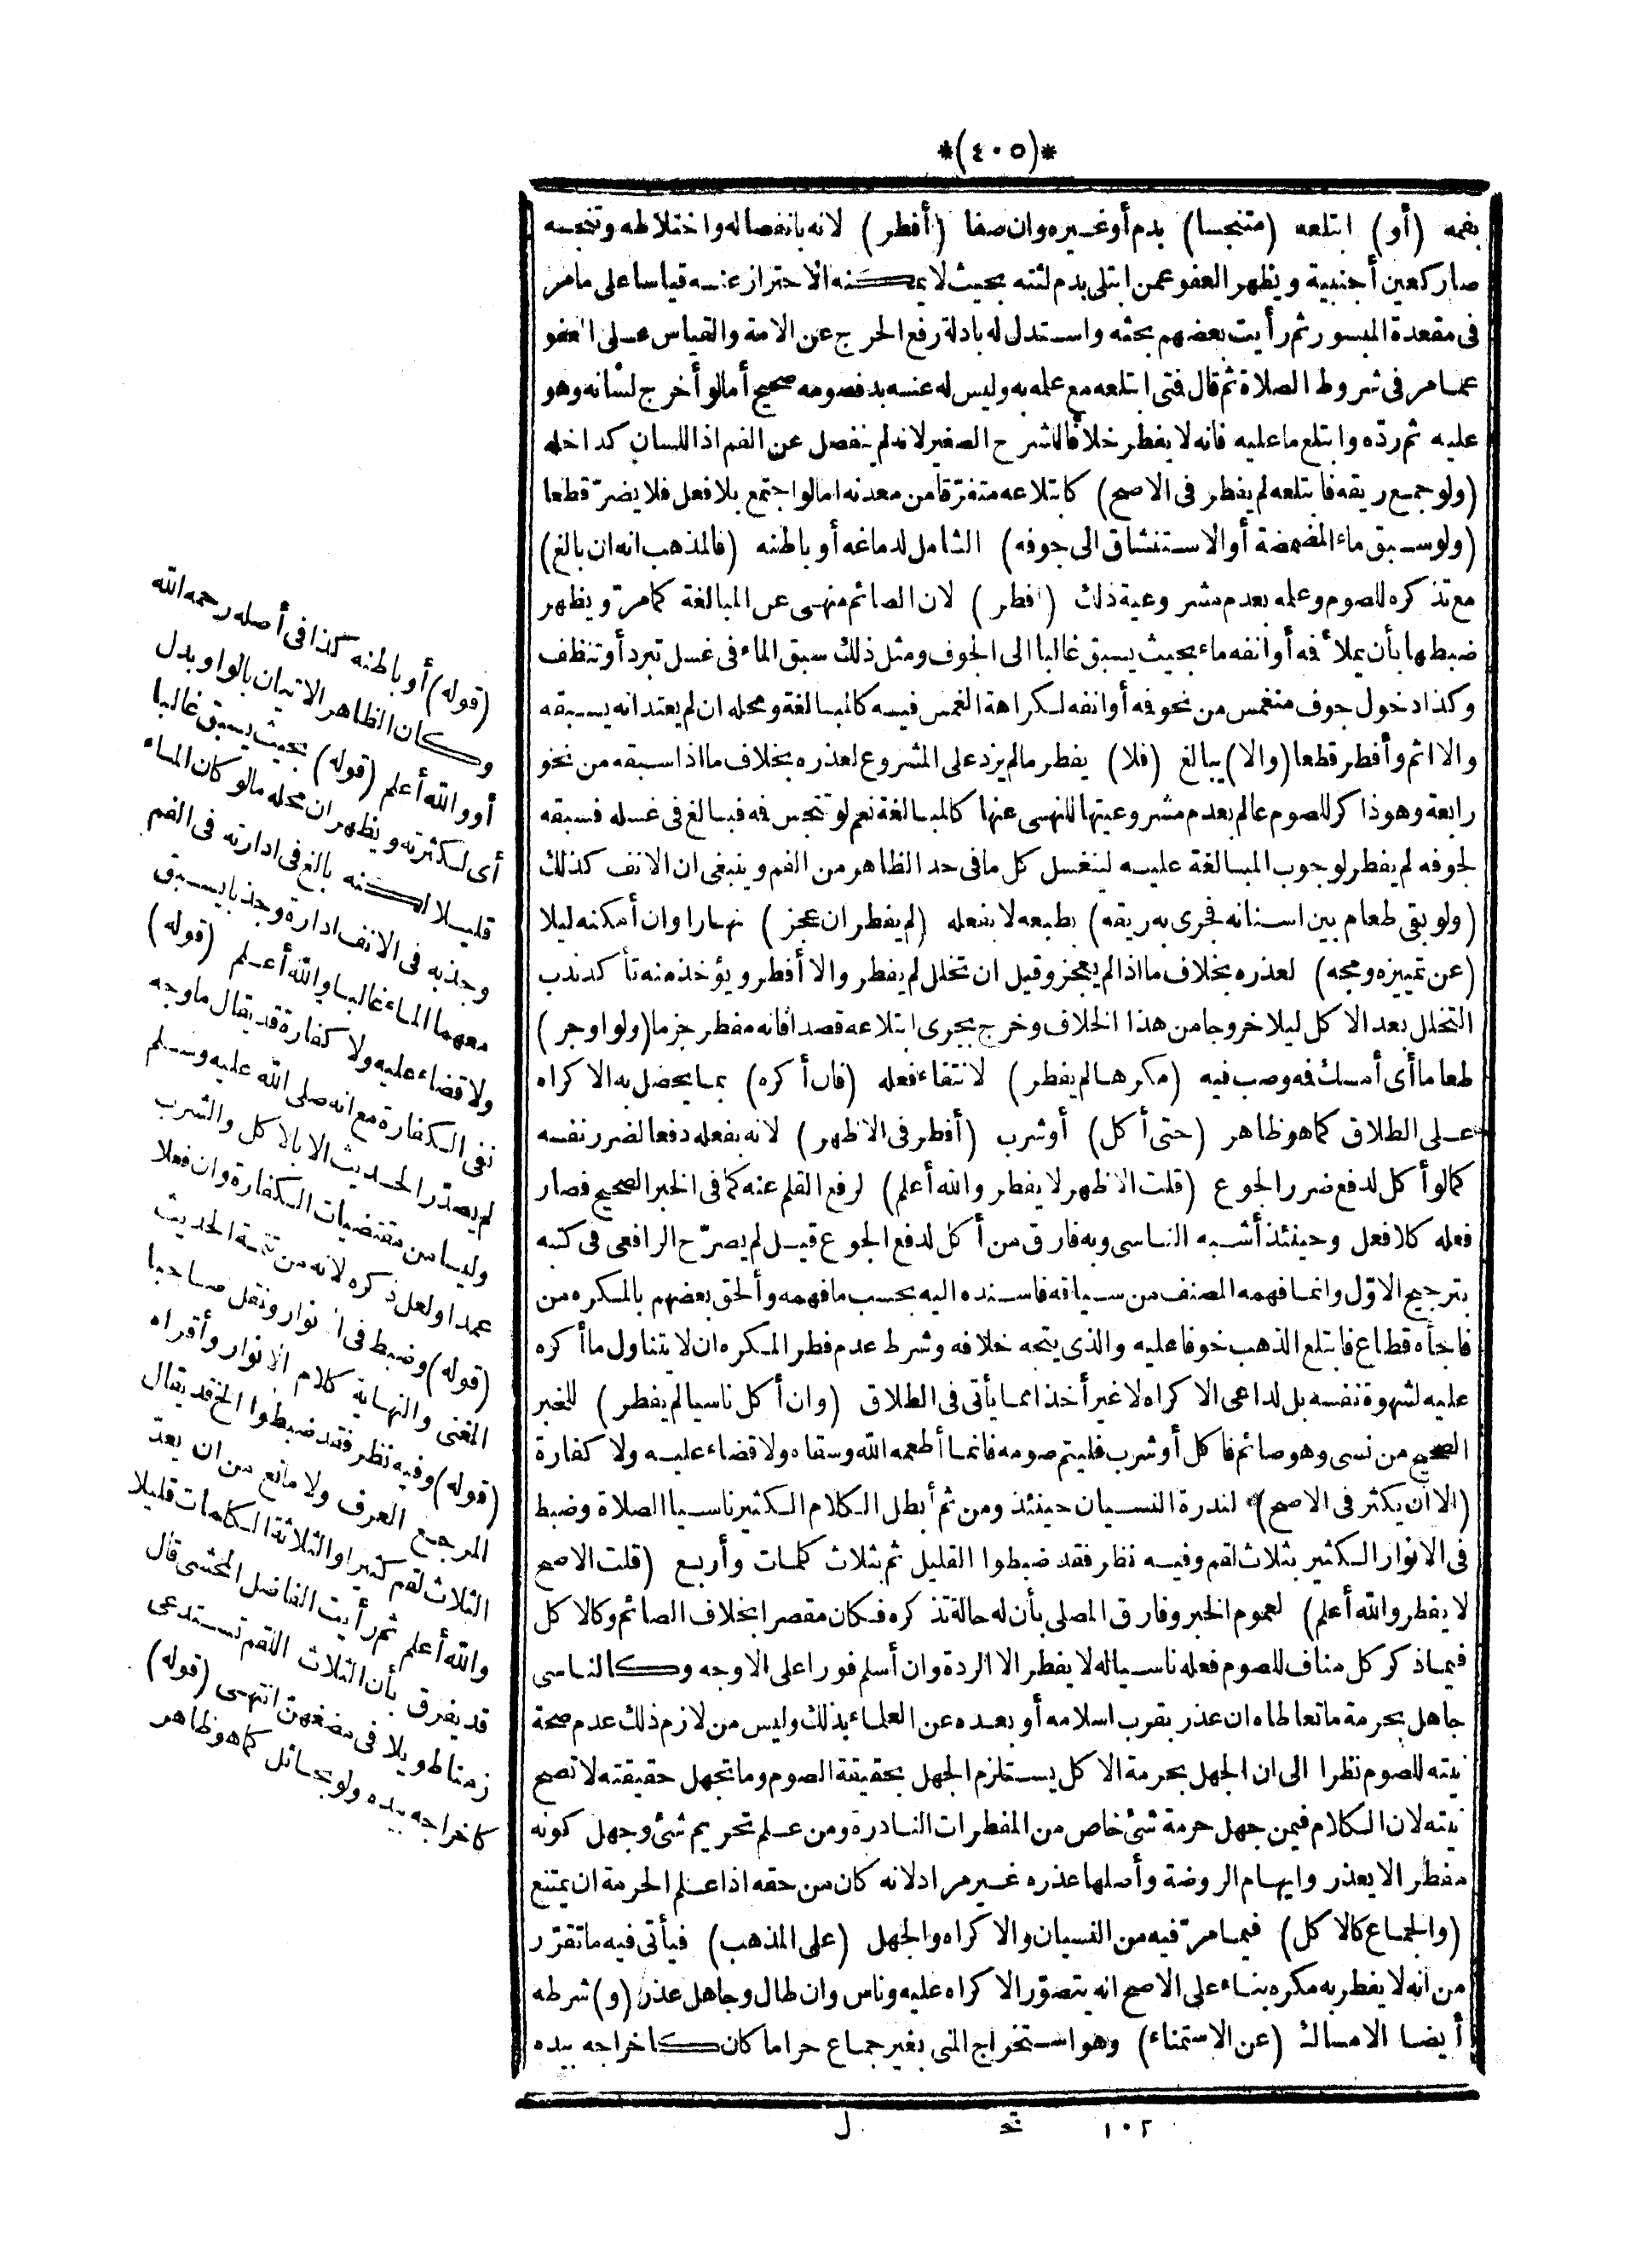 *(٤٠٥)*
بفمه (أو) ابتلعه (متنجسا) بدم أو غيره وان صفا (أفطر) لانه بانفصاله واختلاطه وتنجسه
صار كعين أجنبية ويظهر العفو عمن ابتلى بدم لثته بحيث لا يمكنه الاحتراز عنه قياسا على ما مر
فى مقعدة المبسور ثم رأيت بعضهم بحثه واستدل له بادلة رفع الحرج عن الامة والقياس على العفو
عما مر فى شروط الصلاة ثم قال فتى ابتلعه مع علمه به وليس له عنه بد فصومه صحيح أما لو أخرج لسانه وهو
عليه ثم ردّه وابتلع ما عليه فانه لا يفطر خلافا للشرح الصغير لانه لم ينفصل عن الفم اذ اللسان كداخله
(ولو جمع ريقه فابتلعه لم يفطر فى الاصح) كابتلاعه متفرّقا من معدنه اما لو اجتمع بلا فعل فلا يضرّ قطعا
(ولو سبق ماء المضمضة أو الاستنشاق الى جوفه) الشامل لدماغه أو باطنه (فالمذهب انه ان بالغ)
مع تذكره للصوم وعلمه بعدم مشروعية ذلك (أفطر) لان الصائم منهى عن المبالغة كما مرّ ويظهر
ضبطها بأن يملأ فه أو انفه ماء بحيث يسبق غالبا الى الجوف ومثل ذلك سبق الماء فى غسل تبرد أو تنظف
وكذا دخول جوف منغمس من نحو فه أو انفه لكراهة الغمس فيه كالمبالغة ومحله ان لم يعتد انه يسبقه
والا اثم وأفطر قطعا (والا) يبالغ (فلا) يفطر ما لم يزد على المشروع لعذره بخلاف ما اذا سبقه من نحو
رابعة وهو ذاكر للصوم عالم بعدم مشروعيتها للنهى عنها كالمبالغة نعم لو تنجس فه فبالغ فى غسله فسبقه
لجوفه لم يفطر لوجوب المبالغة عليه لينغسل كل ما فى حد الظاهر من الفم وينبغى ان الانف كذلك
(ولو بقى طعام بين اسنانه فجرى به ريقه) بطبعه لا بفعله (لم يفطر ان عجز) نهارا وان أمكنه ليلا
(عن تمييزه ومجه) لعذره بخلاف ما اذا لم يعجز وقيل ان تخلل لم يفطر والا أفطر ويؤخذ منه تأكد ندب
التخلل بعد الاكل ليلا خروجا من هذا الخلاف وخرج بجرى ابتلاعه قصدا فانه مفطر جزما (ولو اوجر)
طعاما أى أمسك فه وصب فيه (مكرها لم يفطر) لانتفاء فعله (فان أكره) بما يحصل به الاكراه
على الطلاق كما هو ظاهر (حتى أكل) أو شرب (أفطر فى الاظهر) لانه يفعله دفعا لضرر نفسه
كما لو أكل لدفع ضرر الجوع (قلت الاظهر لا يفطر والله أعلم) لرفع القلم عنه كما فى الخبر الصحيح فصار
فعله كلا فعل وحينئذ أشبه الناسى وبه فارق من أكل لدفع الجوع قيل لم يصرّح الرافعى فى كتبه
بترجيح الاوّل وانما فهمه المصنف من سياقه فاسنده اليه بحسب ما فهمه وألحق بعضهم بالمكره من
فاجأه قطاع فابتلع الذهب خوفا عليه والذى يتجه خلافه وشرط عدم فطر المكره ان لا يتناول ما أكره
عليه لشهوة نفسه بل لداعى الاكراه لا غير أخذا مما يأتى فى الطلاق (وان أكل ناسيا لم يفطر) للخبر
الصحيح من نسى وهو صائم فاكل أو شرب فليتم صومه فانما أطعمه الله وسقاه ولا قضاء عليه ولا كفارة
(الا ان يكثر فى الاصح) لندرة النسيان حينئذ ومن ثم أبطل الكلام الكثير ناسيا الصلاة وضبط
فى الانوار الكثير بثلاث لقم وفيه نظر فقد ضبطوا القليل ثم بثلاث كلمات وأربع (قلت الاصح
لا يفطر والله أعلم) لعموم الخبر وفارق المصلى بأن له حالة تذكره فكان مقصرا بخلاف الصائم وكالاكل
فيما ذكر كل مناف للصوم فعله ناسيا له لا يفطر الا الردة وان أسلم فورا على الاوجه وكالناسى
جاهل بحرمة ما تعاطاه ان عذر بقرب اسلامه أو بعده عن العلماء بذلك وليس من لازم ذلك عدم صحة
نيته للصوم نظرا الى ان الجهل بحرمة الاكل يستلزم الجهل بحقيقة الصوم وما تجهل حقيقته لا تصح
نيته لان الكلام فيمن جهل حرمة شئ خاص من المفطرات النادرة ومن علم تحريم شئ وجهل كونه
مفطرا لا يعذر وايهام الروضة وأصلها عذره غير مراد لانه كان من حقه اذا علم الحرمة ان يمتنع
(والجماع كالاكل) فيما مرّ فيه من النسيان والاكراه والجهل (على المذهب) فيأتى فيه ما تقرّر
من انه لا يفطر به مكره بناء على الاصح انه يتصوّر الاكراه عليه وناس وان طال وجاهل عذر (و) شرطه
أيضا الامساك (عن الاستمناء) وهو استخراج المنى بغير جماع حراما كان كاخراجه بيده
(قوله) أو باطنه كذا فى أصله رحمه الله
وكان الظاهر الاتيان بالواو بدل
أو والله أعلم (قوله) بحيث يسبق غالبا
أى لكثرته ويظهر ان محله ما لو كان الماء
قليلا لكنه بالغ فى ادارته فى الفم
وجذبه فى الانف ادارة وجذبا يسبق
معهما الماء غالبا والله أعلم (قوله)
ولا قضاء عليه ولا كفارة قد يقال ما وجه
نفى الكفارة مع انه صلى الله عليه وسلم
لم يصدّر الحديث الا بالاكل والشرب
وليسا من مقتضيات الكفارة وان فعلا
عمدا ولعل ذكره لانه من تتمة الحديث
(قوله) وضبط فى الانوار ونقل صاحبا
المغنى والنهاية كلام الانوار وأقراه
(قوله) وفيه نظر فقد ضبطوا الخ قد يقال
المرجع العرف ولا مانع من ان يعدّ
الثلاث لقم كثيرا والثلاثة الكلمات قليلا
والله أعلم ثم رأيت الفاضل المحشى قال
قد يفرق بأن الثلاث اللقم تستدعى
زمنا طويلا فى مضغهن انتهى (قوله)
كاخراجه بيده ولو بحائل كما هو ظاهر
١٠٢ تحـ ل